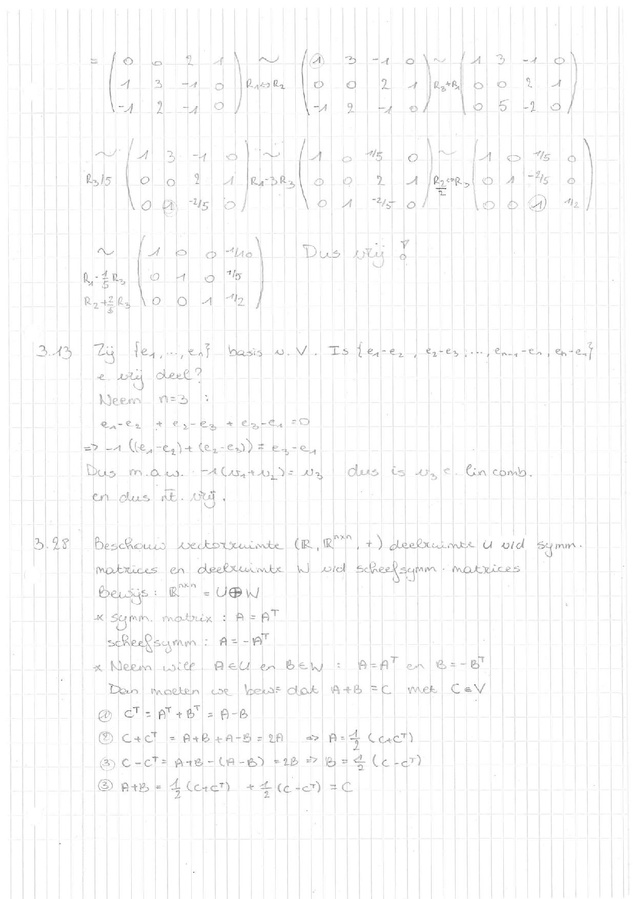 = ( 0 0 2 1 ; 1 3 -1 0 ; -1 2 -1 0 ) ~ R1↔R2 ( 1 3 -1 0 ; 0 0 2 1 ; -1 2 -1 0 ) ~ R3+R1 ( 1 3 -1 0 ; 0 0 2 1 ; 0 5 -2 0 )
~ R3/5 ( 1 3 -1 0 ; 0 0 2 1 ; 0 1 -2/5 0 ) ~ R1-3R3 ( 1 0 1/5 0 ; 0 0 2 1 ; 0 1 -2/5 0 ) ~ R2/2 ↔R3 ( 1 0 1/5 0 ; 0 1 -2/5 0 ; 0 0 1 1/2 )
~ R1-1/5 R3 R2+2/5 R3 ( 1 0 0 -1/10 ; 0 1 0 1/5 ; 0 0 1 1/2 ) Dus vrij!
3.13 Zij {e1,...,en} basis v. V. Is {e1-e2, e2-e3,..., en-1-en, en-e1}
e vrij deel?
Neem n=3 :
e1-e2 + e2-e3 + e3-e1 = 0
=> -1 ((e1-e2)+(e2-e3)) = e3-e1
Dus m.a.w. -1(v1+v2) = v3 dus is v3 e. lin comb.
en dus nt. vrij.
3.28 Beschouw vectorruimte (ℝ, ℝ^n×n, +) deelruimte U v/d symm.
matrices en deelruimte W v/d scheefsymm. matrices
Bewijs: ℝ^n×n = U⊕W
* symm. matrix : A = A^T
scheefsymm : A = -A^T
* Neem will A∈U en B∈W : A=A^T en B=-B^T
Dan moeten we bew= dat A+B = C met C∈V
① C^T = A^T + B^T = A-B
② C+C^T = A+B+A-B = 2A => A = 1/2 (C+C^T)
③ C-C^T = A+B-(A-B) = 2B => B = 1/2 (C-C^T)
③ A+B = 1/2 (C+C^T) + 1/2 (C-C^T) = C